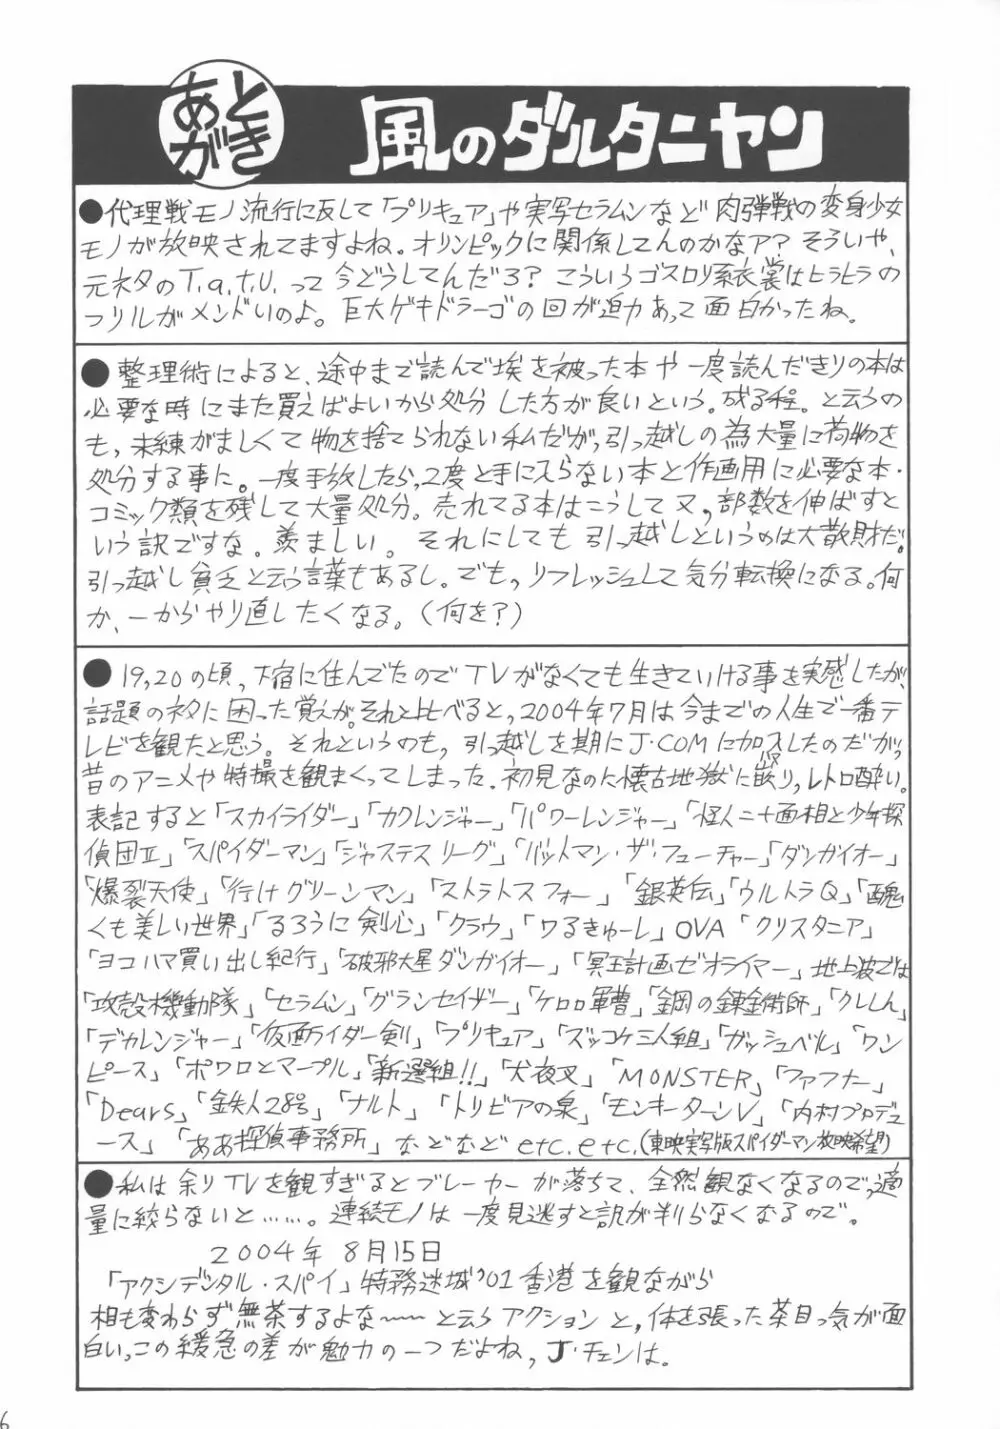 あとがき
風のダルタニヤン
●代理戦モノ流行に反して「プリキュア」や実写セラムンなど肉弾戦の変身少女
モノが放映されてますよね。オリンピックに関係してんのかなァ?そういや、
元ネタのT.a.t.u.って今どうしてんだろ?こういうゴスロリ系衣裳はヒラヒラの
フリルがメンドいのよ。巨大ゲキドラーゴの回が迫力あって面白かったね。
●整理術によると、途中まで読んで埃を被った本や一度読んだきりの本は
必要な時にまた買えばよいから処分した方が良いという。成る程。と云うの
も,未練がましくて物を捨てられない私だが,引っ越しの為大量に荷物を
処分する事に。一度手放したら,2度と手に入らない本と作画用に必要な本・
コミック類を残して大量処分。売れてる本はこうして又,部数を伸ばすと
いう訳ですな。羨ましい。それにしても引っ越しというのは大散財だ。
引っ越し貧乏と云う言葉もあるし。でもっリフレッシュして気分転換になる。何
か、一からやり直したくなる。(何を?)
●19,20の頃,下宿に住んでたのでTVがなくても生きていける事を実感したが,
話題のネタに困った覚えが。それと比べると,2004年7月は今までの人生で一番テ
レビを観たと思う。それというのも,引っ越しを期にJ・COMに加入したのだがっ
昔のアニメや特撮を観まくってしまった.初見なのに懐古地獄に嵌り,レトロ酔い。
表記すると「スカイライダー」「カクレンジャー」「パワーレンジャー」「怪人二十面相と少年探
偵団Ⅱ」「スパイダーマン」「ジャステスリーグ」「バットマン・ザ・フューチャー」「ダンガイオー」
「爆裂天使」「行けグリーンマン」「ストラトスフォー」「銀英伝」「ウルトラQ」「醜
くも美しい世界」「るろうに剣心」「クラウ」「ワるきゅーレ」OVA「クリスタニア」
「ヨコハマ買い出し紀行」「破邪大星ダンガイオー」「冥王計画ゼオライマー」地上波では
「攻殻機動隊」「セラムン」「グランセイザー」「ケロロ軍曹」「鋼の錬金術師」「クレしん」
「デカレンジャー」「仮面ライダー剣」「プリキュア」「ズッコケ三人組」「ガッシュベル」「ワン
ピース」「ポワロとマープル」「新選組!!」「犬夜叉」「MONSTER」「ファフナー」
「Dears」「鉄人28号」「ナルト」「トリビアの泉」「モンキーターンV」「内村プロデュ
ース」「ああ探偵事務所」などなどetc.etc.(東映実写版スパイダーマン放映希望)
●私は余りTVを観すぎるとブレーカーが落ちて、全然観なくなるのでっ適
量に絞らないと……。連続モノは一度見逃すと訳が判らなくなるので。
2004年8月15日
「アクシデンタル・スパイ」特務迷城'01香港を観ながら
相も変わらず無茶するよな〜〜と云うアクションと,体を張った茶目っ気が面
白いっこの緩急の差が魅力の一つだよね,J・チェンは。
6